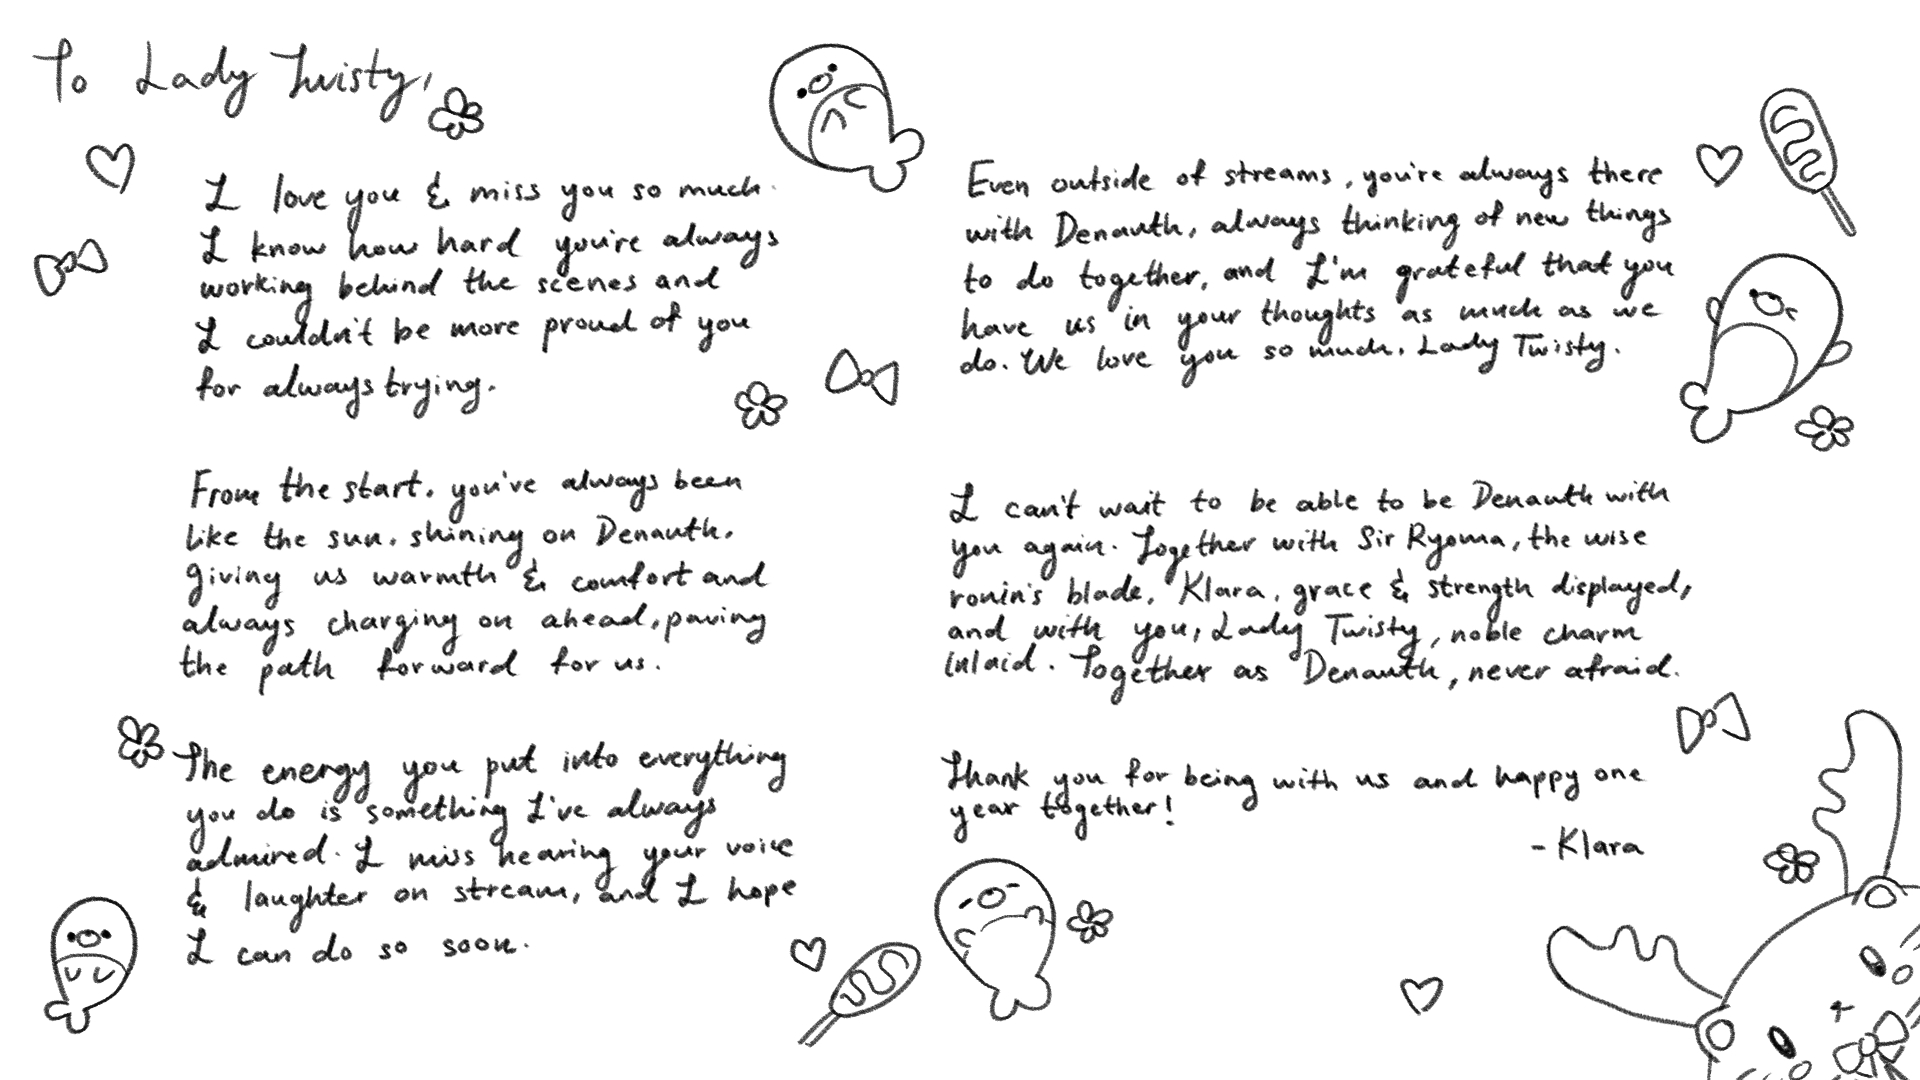 To Lady Twisty,
I love you & miss you so much.
I know how hard you're always
working behind the scenes and
I couldn't be more proud of you
for always trying.
From the start, you've always been
like the sun, shining on Denauth,
giving us warmth & comfort and
always charging on ahead, paving
the path forward for us.
The energy you put into everything
you do is something I've always
admired. I miss hearing your voice
& laughter on stream, and I hope
I can do so soon.
Even outside of streams, you're always there
with Denauth, always thinking of new things
to do together, and I'm grateful that you
have us in your thoughts as much as we
do. We love you so much, Lady Twisty.
I can't wait to be able to be Denauth with
you again. Together with Sir Ryoma, the wise
ronin's blade, Klara, grace & strength displayed,
and with you, Lady Twisty, noble charm
inlaid. Together as Denauth, never afraid.
Thank you for being with us and happy one
year together!
- Klara